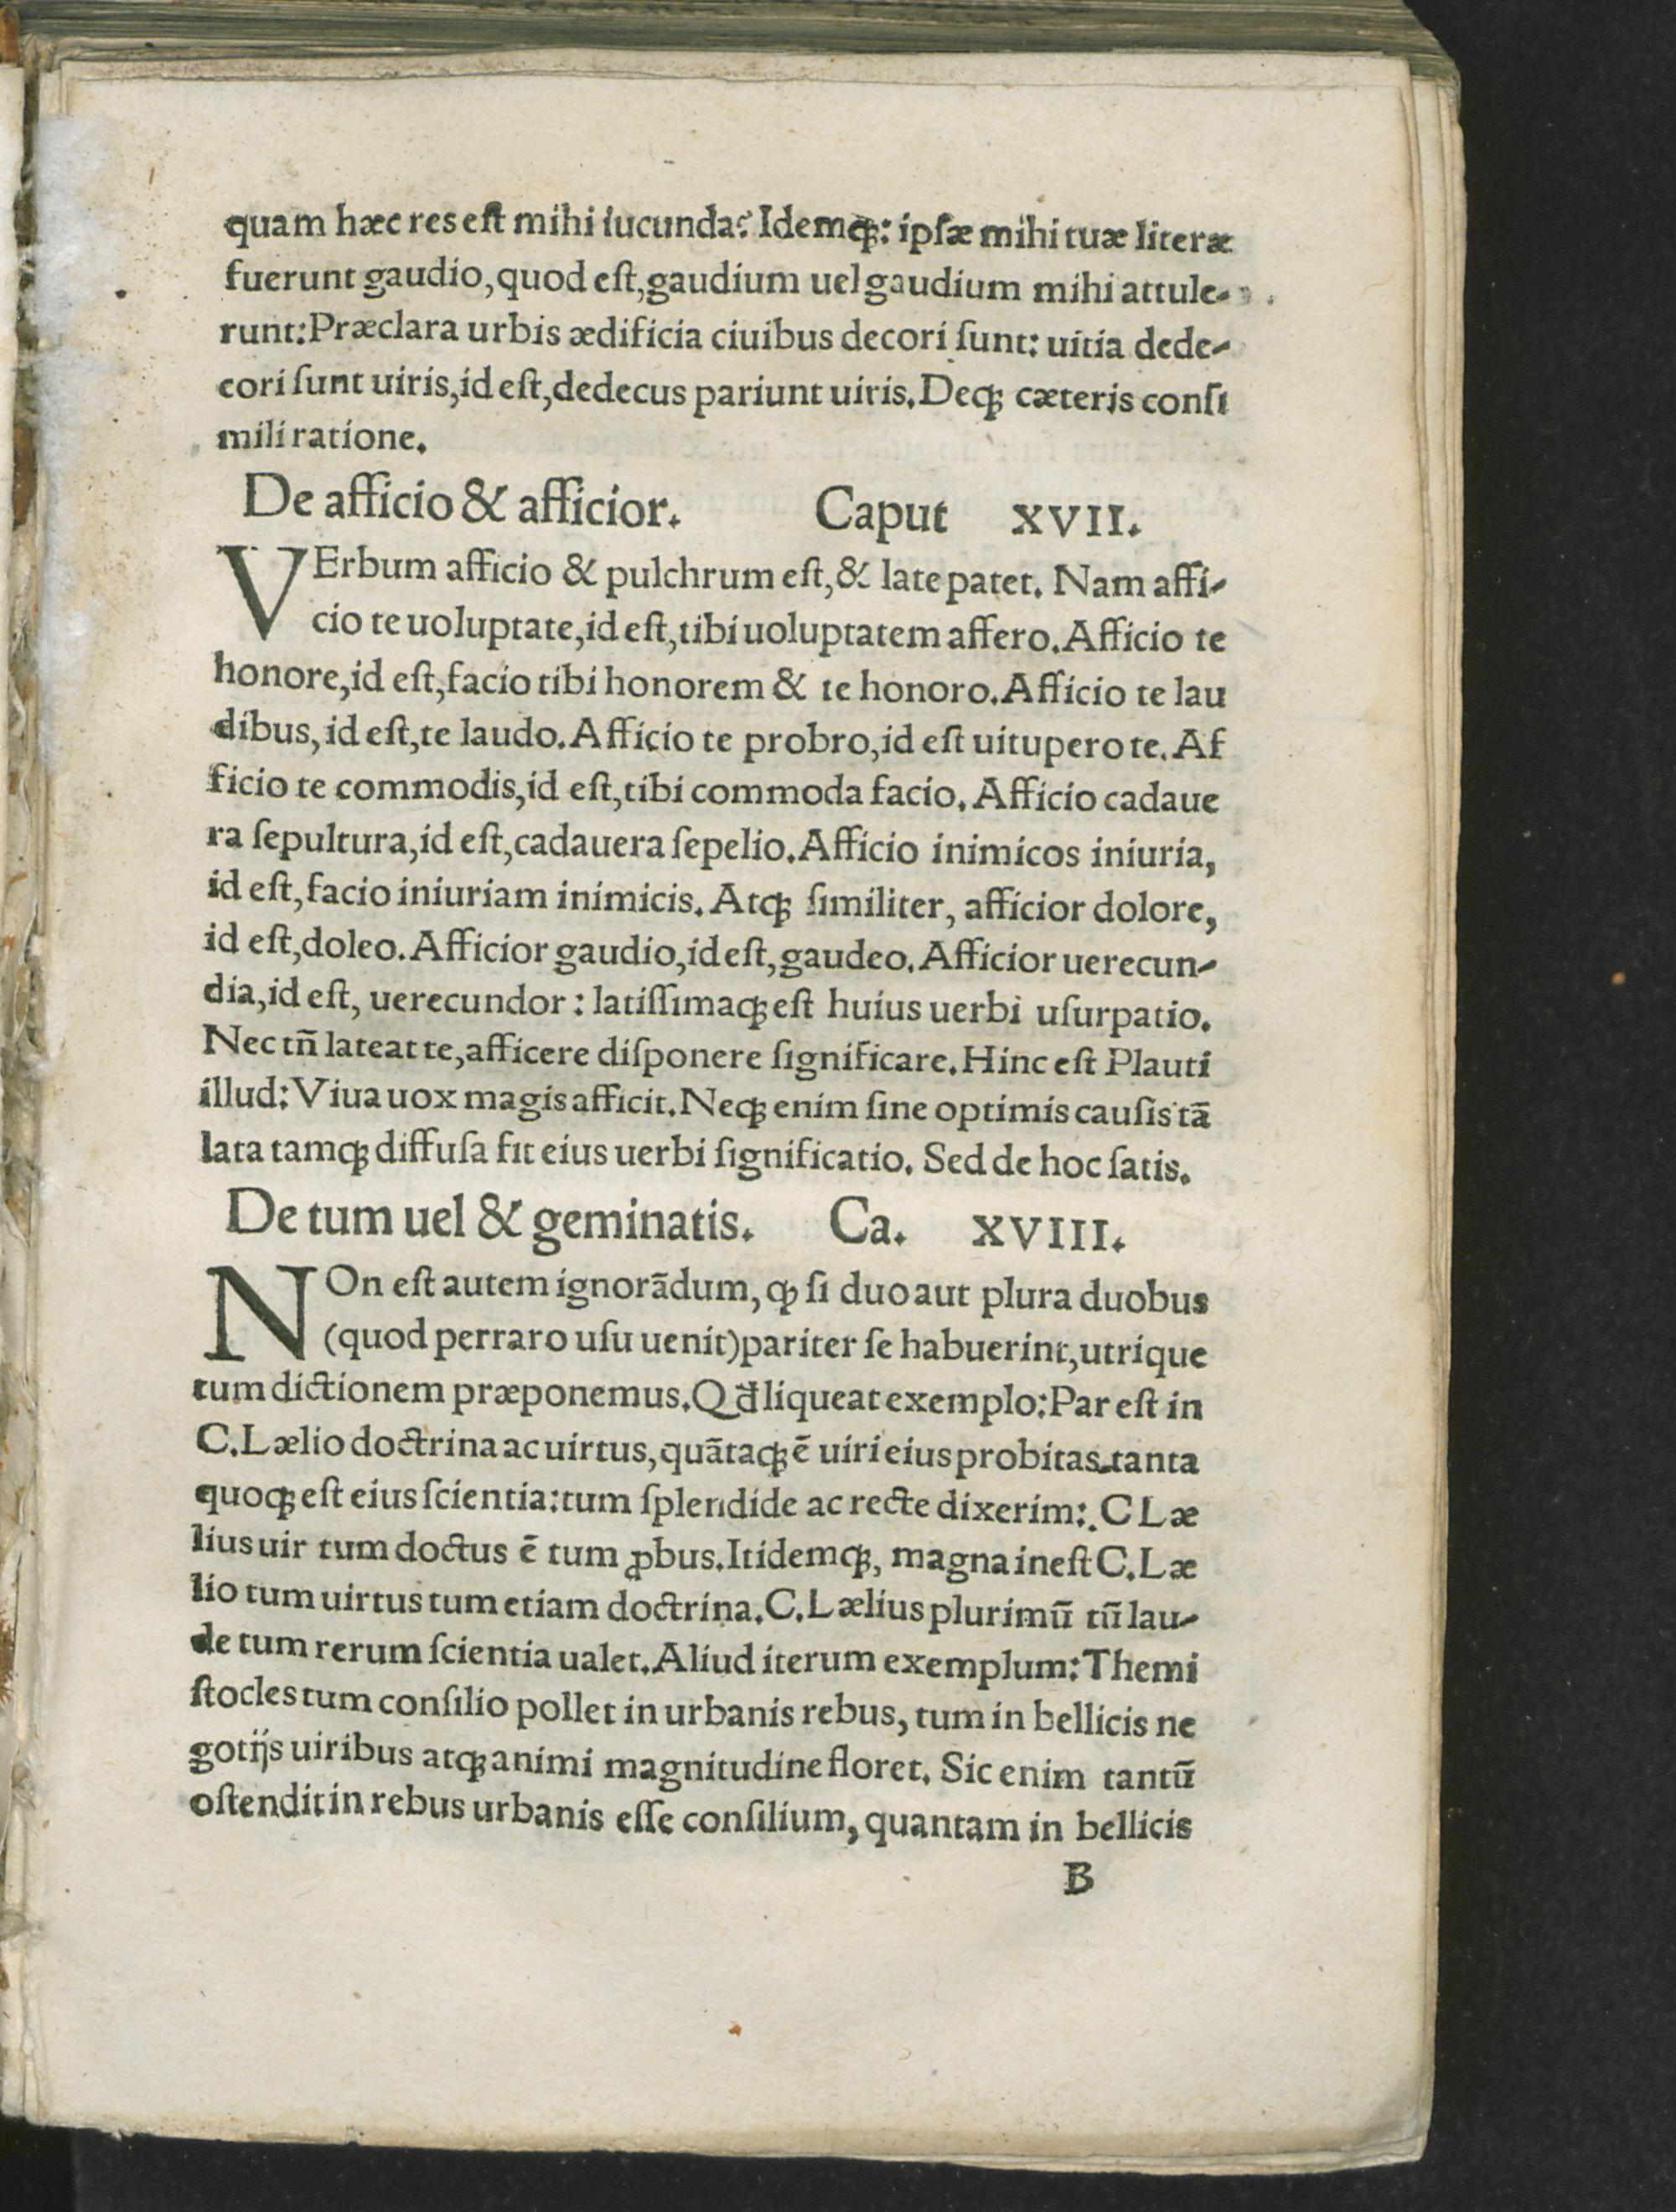 quam hæc res eſt mihi iucunda? Idemqꝫ: ipſæ mihi tuæ literæ
fuerunt gaudio, quod eſt, gaudium uel gaudium mihi attule-
runt: Præclara urbis ædificia ciuibus decori ſunt: uitia dede-
cori ſunt uiris, id eſt, dedecus pariunt uiris. Deqꝫ cæteris conſi
mili ratione.
De afficio & afficior. Caput XVII.
VErbum afficio & pulchrum eſt, & late patet. Nam affi-
cio te uoluptate, id eſt, tibi uoluptatem affero. Afficio te
honore, id eſt, facio tibi honorem & te honoro. Afficio te lau
dibus, id eſt, te laudo. Afficio te probro, id eſt uitupero te. Af
ficio te commodis, id eſt, tibi commoda facio. Afficio cadaue
ra ſepultura, id eſt, cadauera ſepelio. Afficio inimicos iniuria,
id eſt, facio iniuriam inimicis. Atqꝫ ſimiliter, afficior dolore,
id eſt, doleo. Afficior gaudio, id eſt, gaudeo. Afficior uerecun-
dia, id eſt, uerecundor: latiſſimaqꝫ eſt huius uerbi uſurpatio.
Nec tñ lateat te, afficere diſponere ſignificare. Hinc eſt Plauti
illud: Viua uox magis afficit. Neqꝫ enim ſine optimis cauſis tā
lata tamqꝫ diffuſa fit eius uerbi ſignificatio. Sed de hoc ſatis.
De tum uel & geminatis. Ca. XVIII.
NOn eſt autem ignorādum, ꝙ ſi duo aut plura duobus
(quod perraro uſu uenit) pariter ſe habuerint, utrique
tum dictionem præponemus. Qd̄ liqueat exemplo: Par eſt in
C. Lælio doctrina ac uirtus, quātaqꝫ ē uiri eius probitas, tanta
quoqꝫ eſt eius ſcientia: tum ſplendide ac recte dixerim: C Læ
lius uir tum doctus ē tum ꝓbus. Itidemqꝫ, magna ineſt C. Læ
lio tum uirtus tum etiam doctrina. C. Lælius plurimū tū lau-
de tum rerum ſcientia ualet. Aliud iterum exemplum: Themi
ſtocles tum conſilio pollet in urbanis rebus, tum in bellicis ne
gotijs uiribus atqꝫ animi magnitudine floret. Sic enim tantū
oſtendit in rebus urbanis eſſe conſilium, quantam in bellicis
B